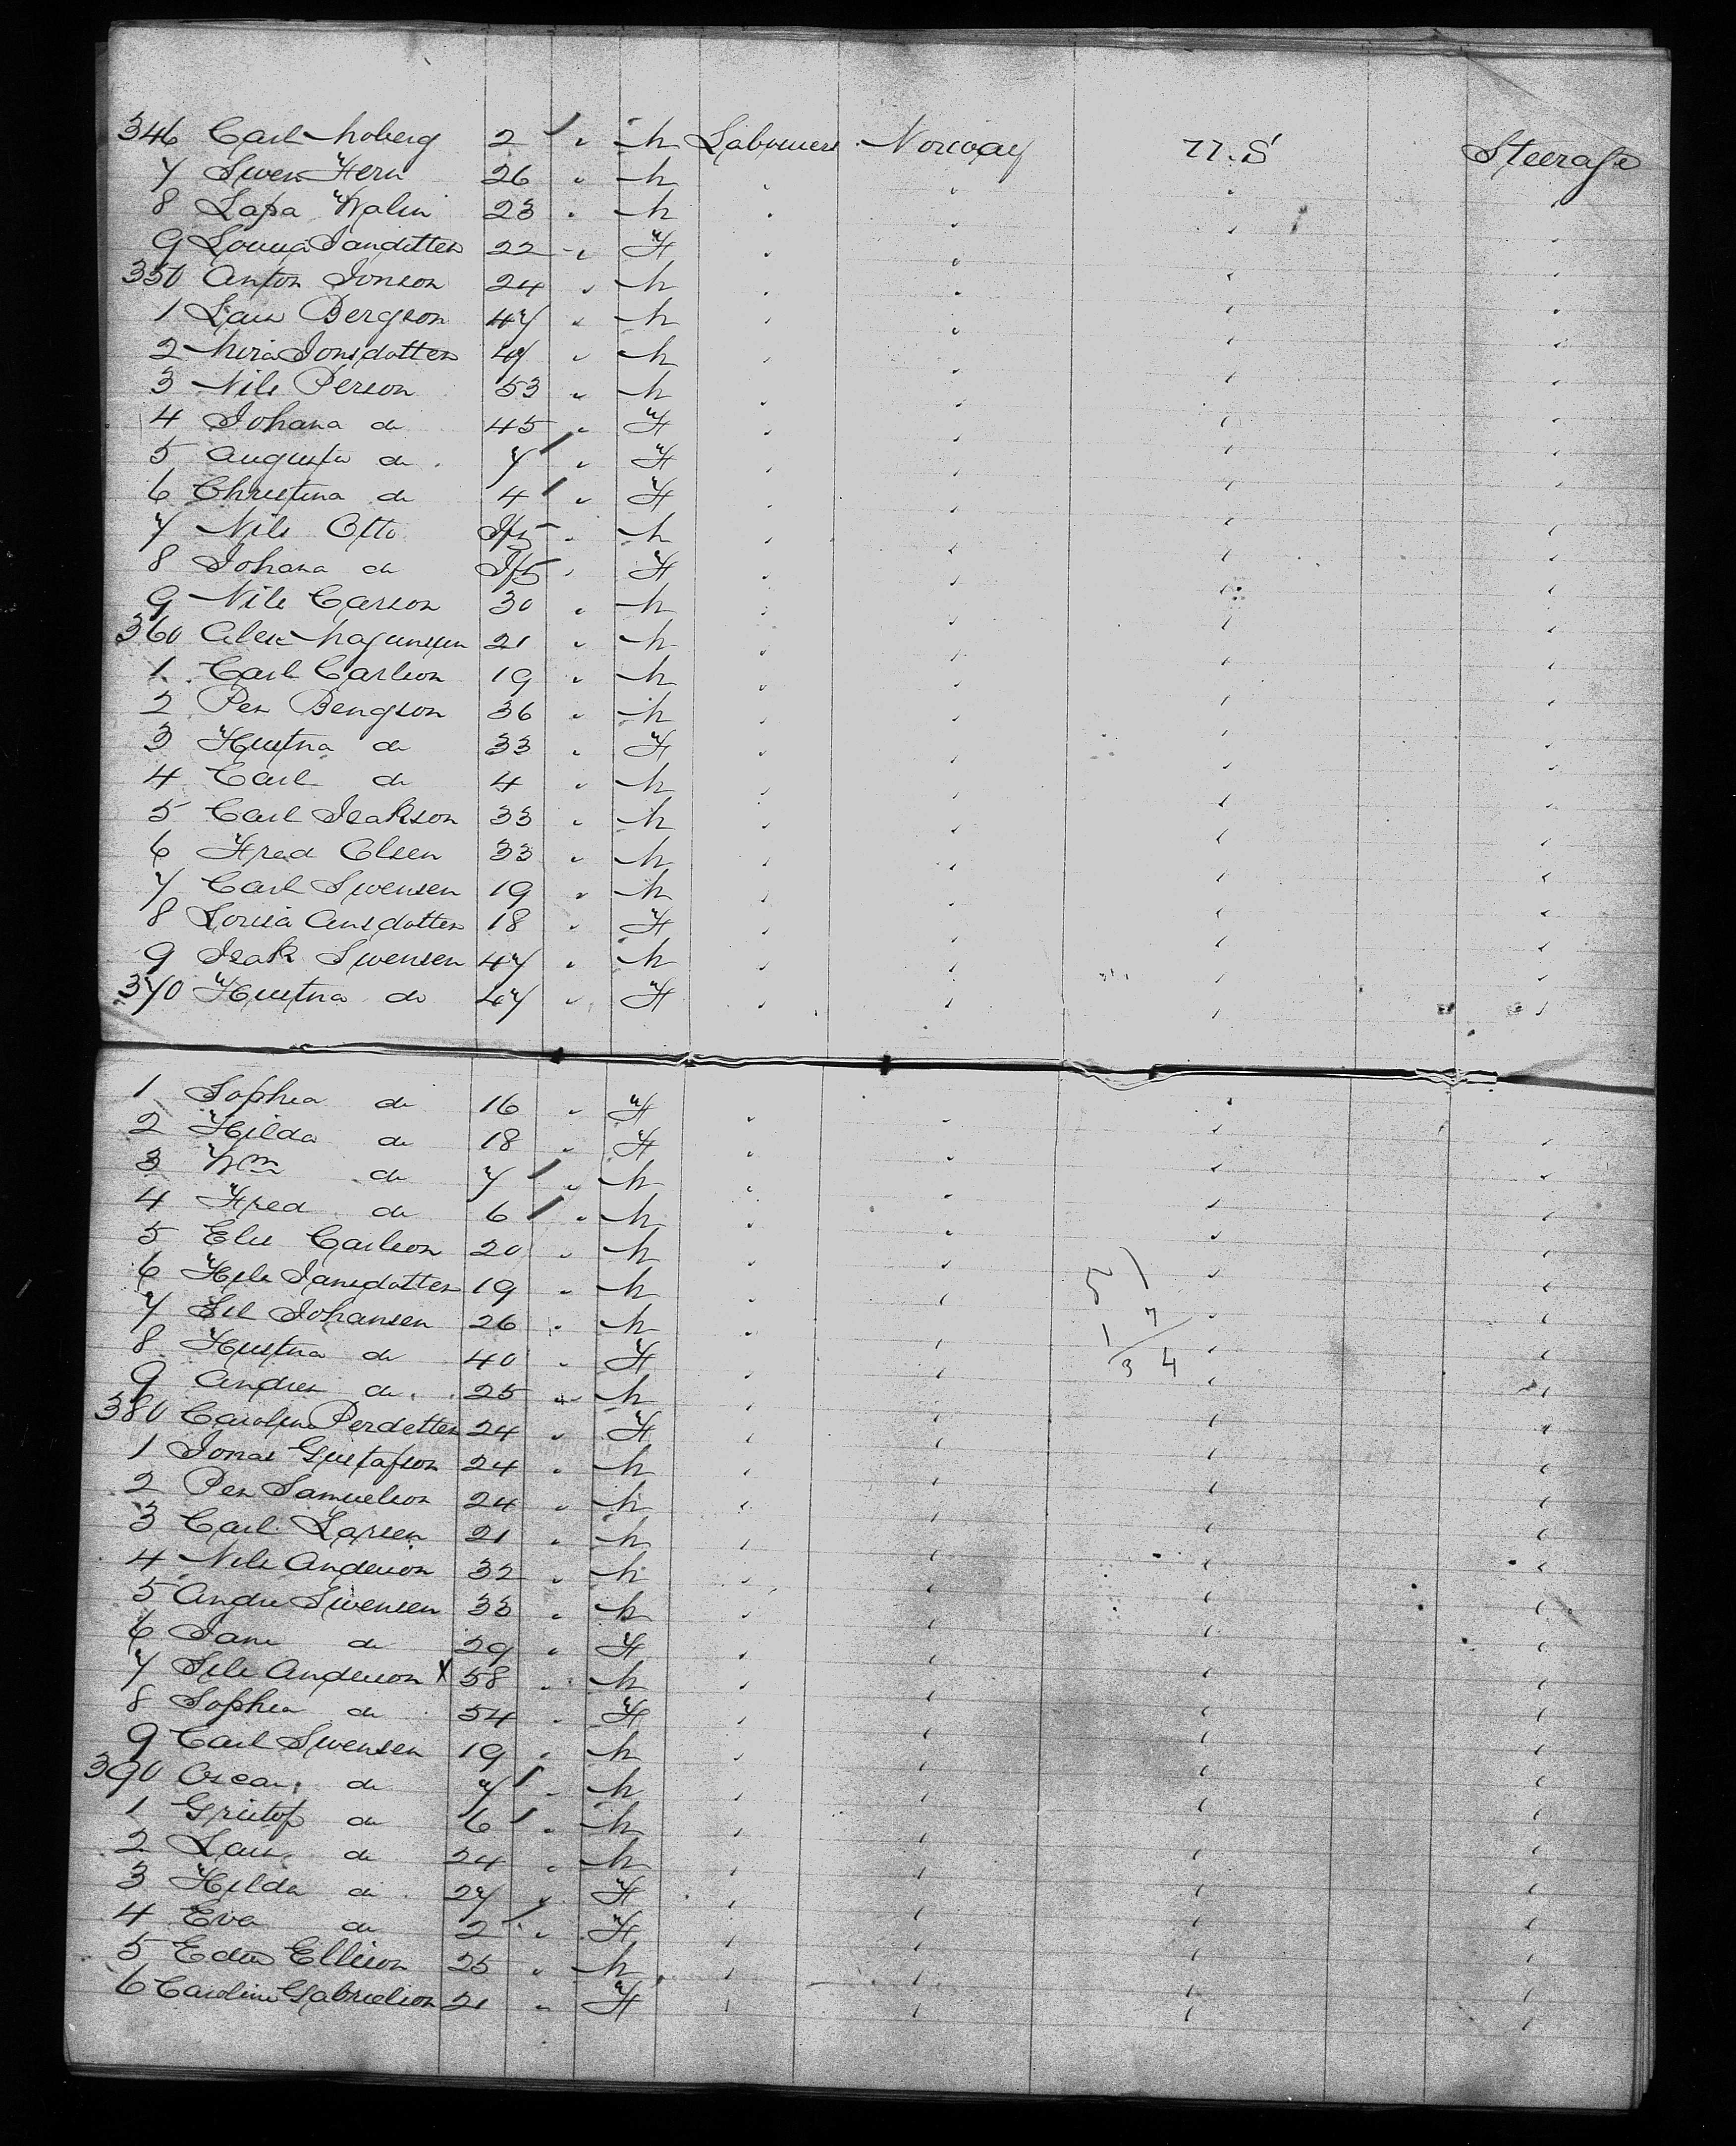 346 Carl Moberg 2 " M Labourers Norway U.S Steerage
7 Swen Hern 26 " M " " " "
8 Lapa Walin 23 " M " " " "
9 22 " F " " " "
350 Anton Jonson 24 " M " " " "
1 Lars Bergson 47 " M " " " "
2 Jonsdotter 47 " M " " " "
3 Nils Person 53 " M " " " "
4 Johana do 45 " F " " " "
5 Augusta do 7 " F " " " "
6 Christina do 4 " F " " " "
7 Nils Otto " M " " " "
8 Johana do " F " " " "
9 Nils Carson 30 " M " " " "
360 Alex Magunsun 21 " M " " " "
1 Carl Carlson 19 " M " " " "
2 Per Bengson 36 " M " " " "
3 Hustna do 33 " F " " " "
4 Carl do 4 " M " " " "
5 Carl Isakson 33 " M " " " "
6 Fred Olsen 33 " M " " " "
7 Carl Swensen 19 " M " " " "
8 Lovisa Ansdotter 18 " F " " " "
9 Isak Swensen 47 " M " " " "
370 Hustna do 47 " F " " " "
1 Sophia do 16 " F " " "
2 Hilda do 18 " F " " " "
3 Wm do 7 " M " " " "
4 Fred do 6 " M " " " "
5 Carlson 20 " M " " " "
6 Jansdotter 19 " M " " " "
7 Johansen 26 " M " " " "
8 Hustna do 40 " F " " " "
9 Andres do 25 " M " " " "
380 Carolina Perdotter 24 " F " " " "
1 Jonas Gustafson 24 " M " " " "
2 Per Samuelson 24 " M " " " "
3 Carl Larsen 21 " M " " " "
4 Nils Anderson 32 " M " " " "
5 Andre Swensen 33 " M " " " "
6 Jane do 29 " F " " " "
7 Anderson X 58 " M " " " "
8 Sophia do 54 " F " " " "
9 Carl Swensen 19 " M " " " "
390 Oscar do 7 " M " " " "
1 do 6 " M " " " "
2 Lars do 24 " M " " " "
3 Hilda do 27 " F " " " "
4 Eva do 2 " F " " " "
5 Ellison 25 " M " " " "
6 Caroline Gabrielson 21 " F " " " "